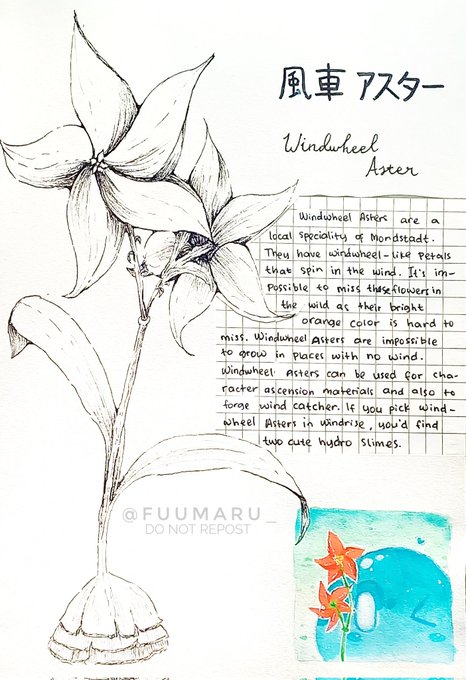 風車アスター
Windwheel
Aster
Windwheel Asters are a
local speciality of Mondstadt.
They have windwheel-like petals
that spin in the wind. It's im-
possible to miss these flowers in
the wild as their bright
orange color is hard to
miss. Windwheel Asters are impossible
to grow in places with no wind.
Windwheel Asters can be used for cha-
racter ascension materials and also to
forge wind catcher. If you pick wind-
wheel Asters in windrise, you'd find
two cute hydro slimes.
@FUUMARU_
DO NOT REPOST